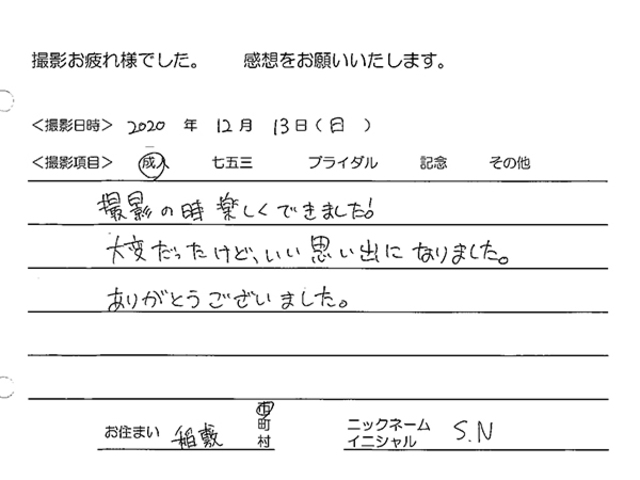 撮影お疲れ様でした。 感想をお願いいたします。
＜撮影日時＞ 2020 年 12 月 13 日 ( 日 )
＜撮影項目＞ 成人 七五三 ブライダル 記念 その他
撮影の時楽しくできました!
大変だったけど、いい思い出になりました。
ありがとうございました。
お住まい 稲敷 市 町 村
ニックネーム イニシャル S.N